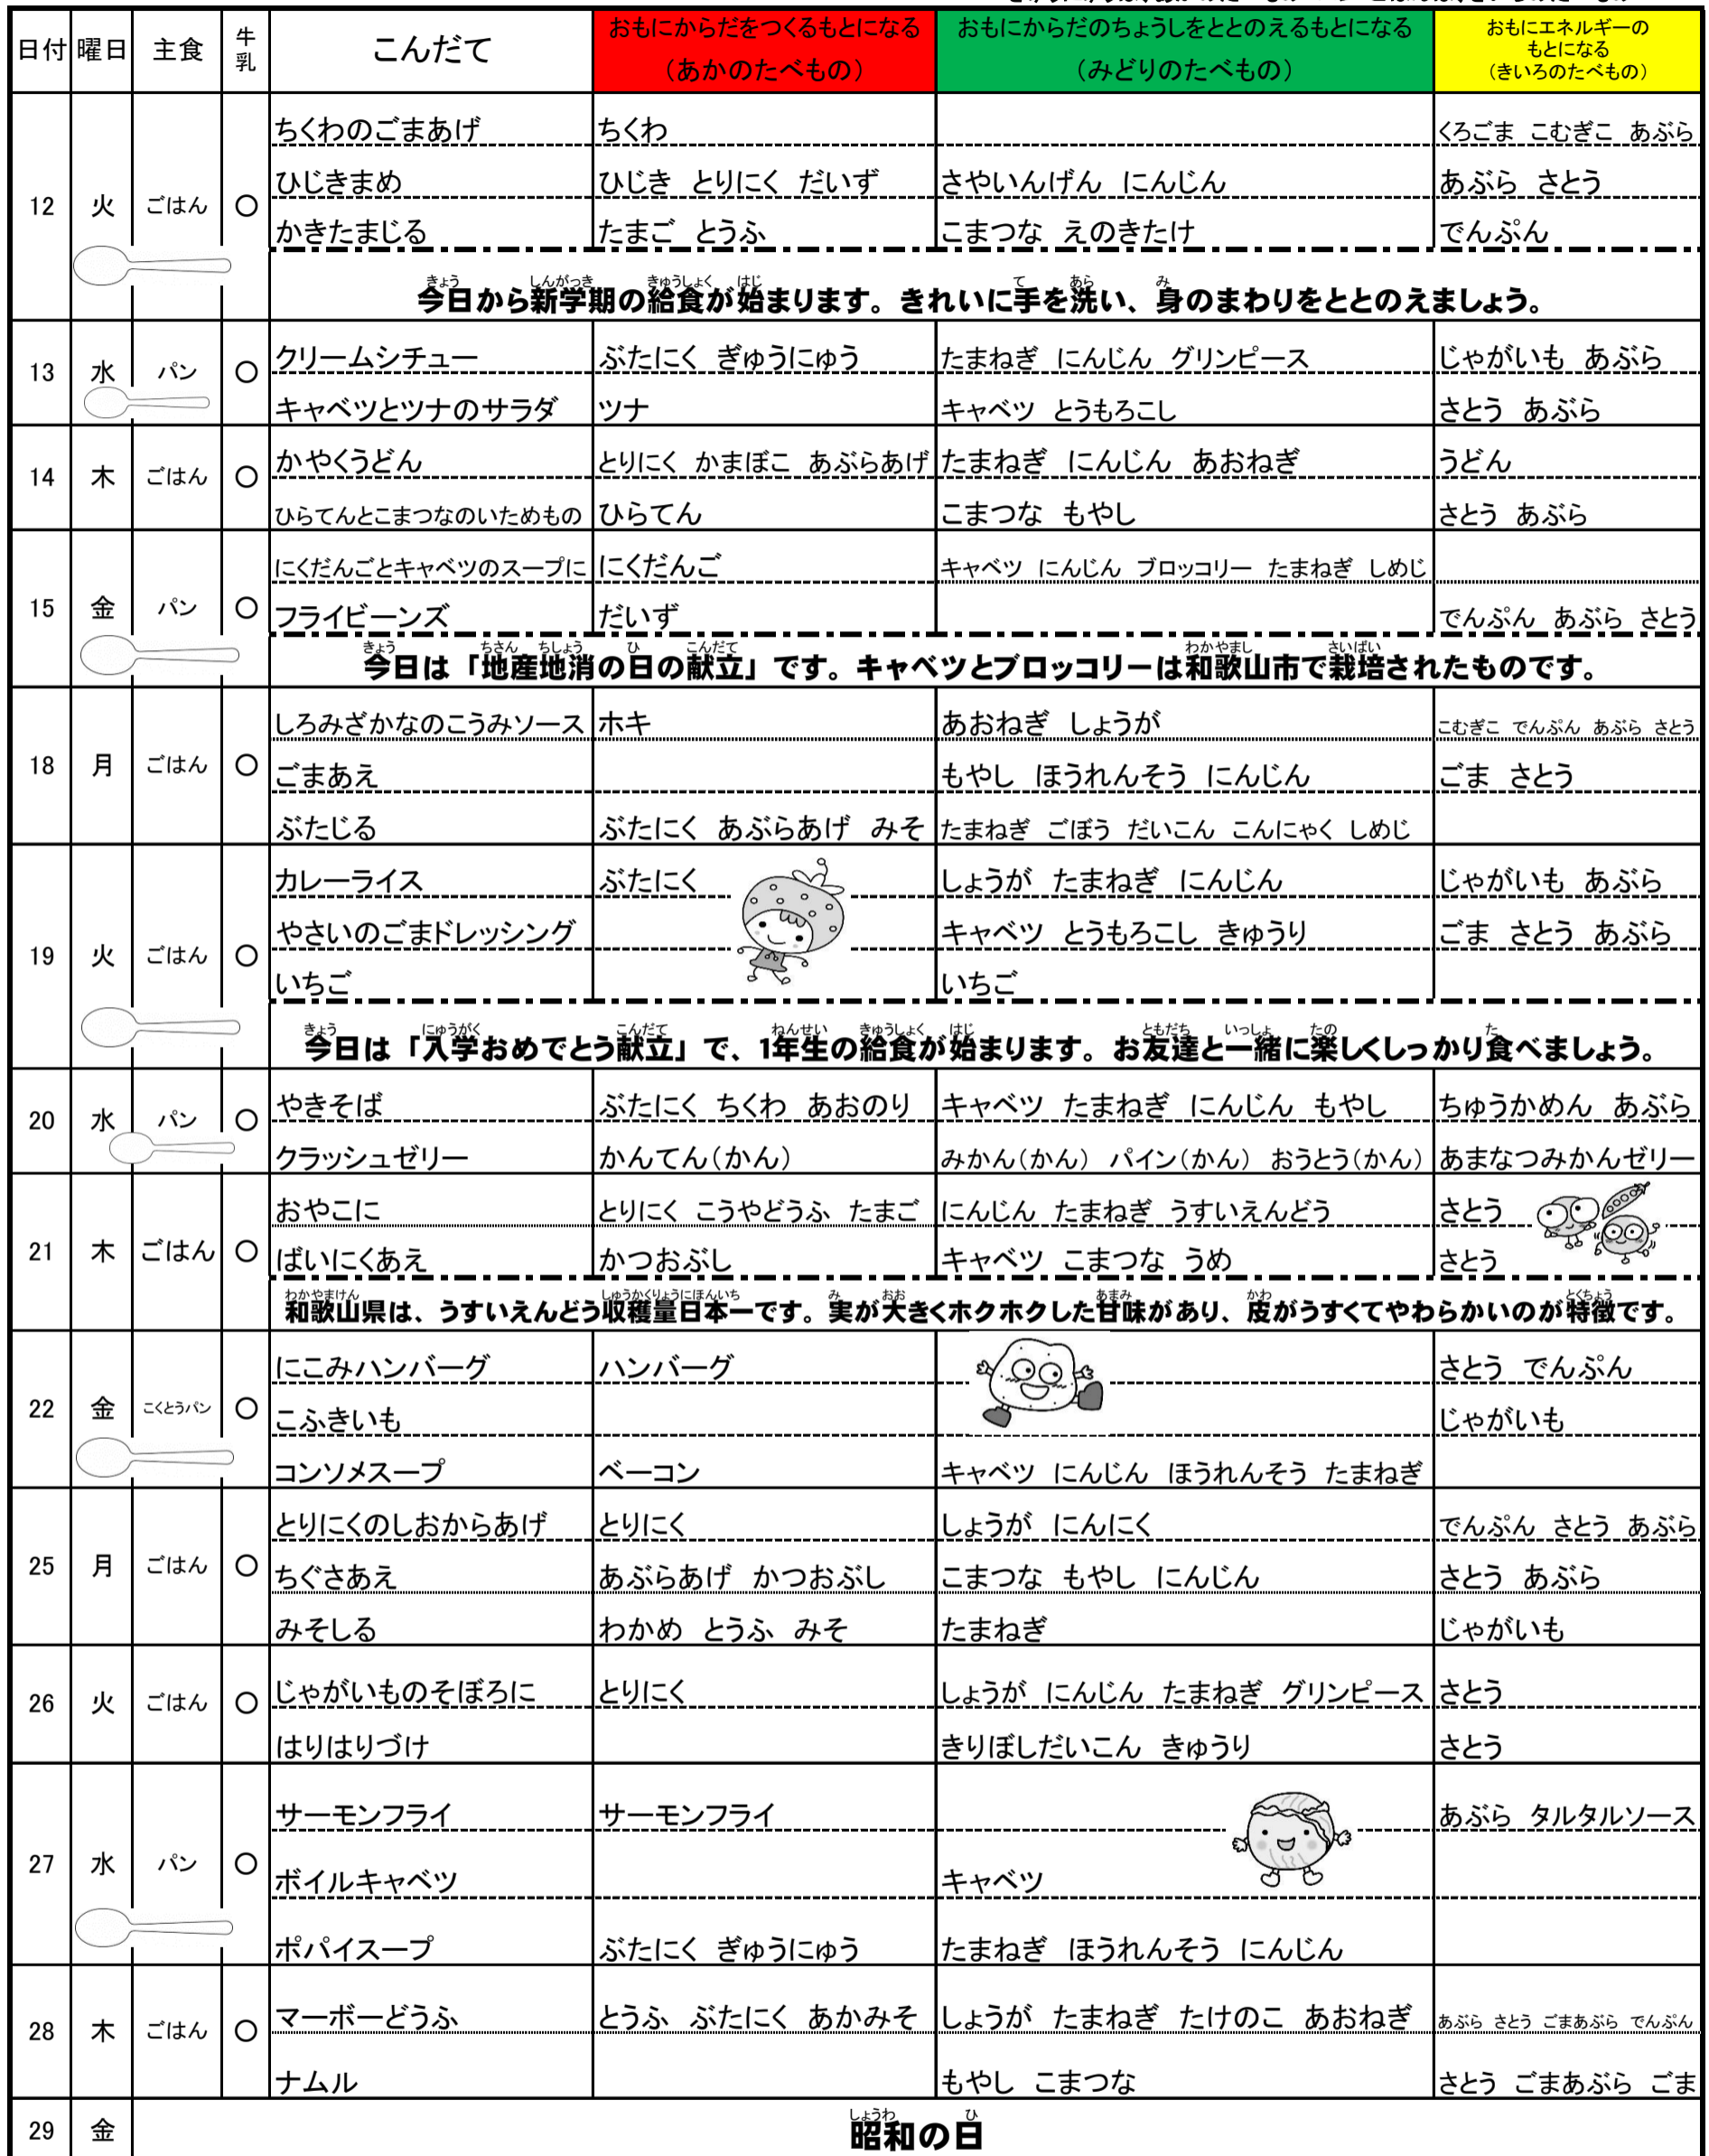 日付 曜日 主食 牛乳 こんだて おもにからだをつくるもとになる（あかのたべもの） おもにからだのちょうしをととのえるもとになる（みどりのたべもの） おもにエネルギーのもとになる（きいろのたべもの）
12 火 ごはん ○
ちくわのごまあげ ちくわ くろごま こむぎこ あぶら
ひじきまめ ひじき とりにく だいず さやいんげん にんじん あぶら さとう
かきたまじる たまご とうふ こまつな えのきたけ でんぷん
きょう しんがっき きゅうしょく はじ て あら み
今日から新学期の給食が始まります。きれいに手を洗い、身のまわりをととのえましょう。
13 水 パン ○
クリームシチュー ぶたにく ぎゅうにゅう たまねぎ にんじん グリンピース じゃがいも あぶら
キャベツとツナのサラダ ツナ キャベツ とうもろこし さとう あぶら
14 木 ごはん ○
かやくうどん とりにく かまぼこ あぶらあげ たまねぎ にんじん あおねぎ うどん
ひらてんとこまつなのいためもの ひらてん こまつな もやし さとう あぶら
15 金 パン ○
にくだんごとキャベツのスープに にくだんご キャベツ にんじん ブロッコリー たまねぎ しめじ
フライビーンズ だいず でんぷん あぶら さとう
きょう ちさん ちしょう ひ こんだて わかやまし さいばい
今日は「地産地消の日の献立」です。キャベツとブロッコリーは和歌山市で栽培されたものです。
18 月 ごはん ○
しろみざかなのこうみソース ホキ あおねぎ しょうが こむぎこ でんぷん あぶら さとう
ごまあえ もやし ほうれんそう にんじん ごま さとう
ぶたじる ぶたにく あぶらあげ みそ たまねぎ ごぼう だいこん こんにゃく しめじ
19 火 ごはん ○
カレーライス ぶたにく しょうが たまねぎ にんじん じゃがいも あぶら
やさいのごまドレッシング キャベツ とうもろこし きゅうり ごま さとう あぶら
いちご いちご
きょう にゅうがく こんだて ねんせい きゅうしょく はじ ともだち いっしょ たの た
今日は「入学おめでとう献立」で、1年生の給食が始まります。お友達と一緒に楽しくしっかり食べましょう。
20 水 パン ○
やきそば ぶたにく ちくわ あおのり キャベツ たまねぎ にんじん もやし ちゅうかめん あぶら
クラッシュゼリー かんてん（かん） みかん（かん） パイン（かん） おうとう（かん） あまなつみかんゼリー
21 木 ごはん ○
おやこに とりにく こうやどうふ たまご にんじん たまねぎ うすいえんどう さとう
ばいにくあえ かつおぶし キャベツ こまつな うめ さとう
わかやまけん しゅうかくりょうにほんいち み おお あまみ かわ とくちょう
和歌山県は、うすいえんどう収穫量日本一です。実が大きくホクホクした甘味があり、皮がうすくてやわらかいのが特徴です。
22 金 こくとうパン ○
にこみハンバーグ ハンバーグ さとう でんぷん
こふきいも じゃがいも
コンソメスープ ベーコン キャベツ にんじん ほうれんそう たまねぎ
25 月 ごはん ○
とりにくのしおからあげ とりにく しょうが にんにく でんぷん さとう あぶら
ちぐさあえ あぶらあげ かつおぶし こまつな もやし にんじん さとう あぶら
みそしる わかめ とうふ みそ たまねぎ じゃがいも
26 火 ごはん ○
じゃがいものそぼろに とりにく しょうが にんじん たまねぎ グリンピース さとう
はりはりづけ きりぼしだいこん きゅうり さとう
27 水 パン ○
サーモンフライ サーモンフライ あぶら タルタルソース
ボイルキャベツ キャベツ
ポパイスープ ぶたにく ぎゅうにゅう たまねぎ ほうれんそう にんじん
28 木 ごはん ○
マーボーどうふ とうふ ぶたにく あかみそ しょうが たまねぎ たけのこ あおねぎ あぶら さとう ごまあぶら でんぷん
ナムル もやし こまつな さとう ごまあぶら ごま
しょうわ ひ
29 金 昭和の日